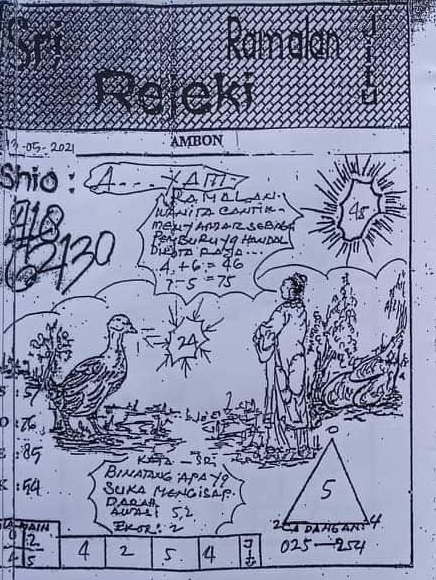 Sri
Ramalan
JITU
Rejeki
-05-2021
AMBON
Shio : A....YAM
RAMALAN.
WANITA CANTIK-
MENYAMAR SEBAGAI
PEMBURU YG HANDAL
DIKOTA RAYA...
4 + 6 = 46
7 - 5 = 75
45
418
24
: 57
: 76
: 85
: 54
KATA - SRI
BINATANG APA YG
SUKA MENGISAP-
DARAH
AWAS: 5,2
EKOR: 2
5
2 CADANGAN: 4
025 — 254
MAIN
0 2
5
4 2 5 4
JITU